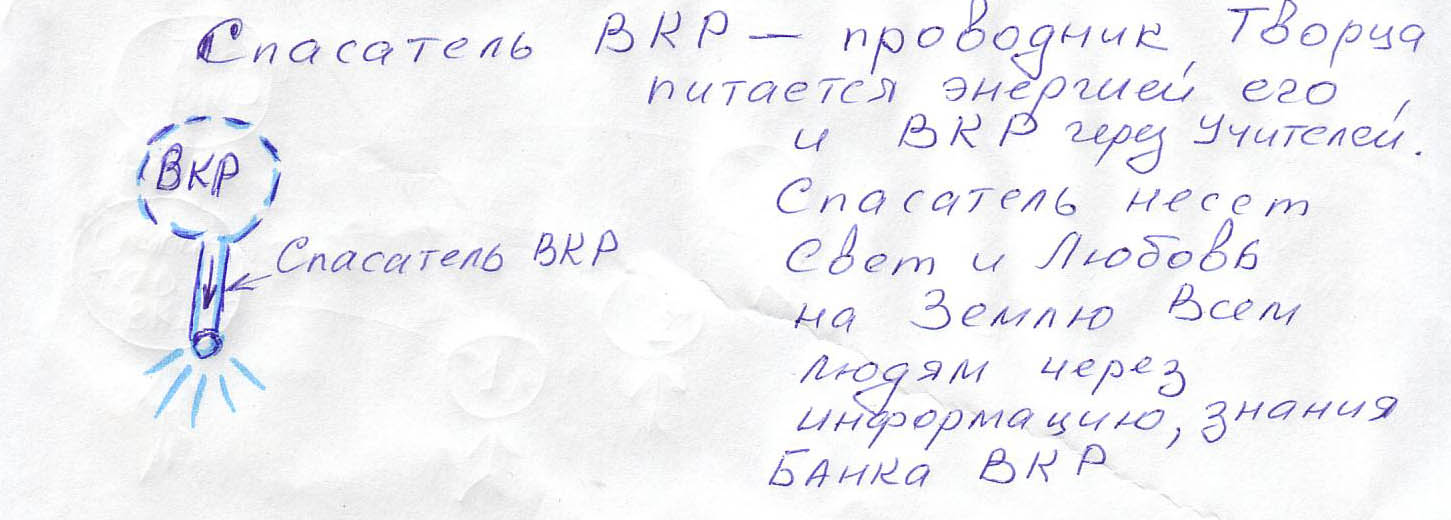 Спасатель ВКР — проводник Творца
питается энергией его,
и ВКР через Учителей.
ВКР
Спасатель ВКР
Спасатель несет
Свет и Любовь
на Землю Всем
людям через
информацию, знания
Банка ВКР